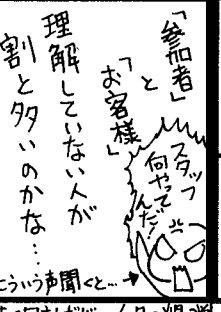 「参加者」
と
「お客様」
理解していない人が
割と多いのかな…
スタッフ
何やって
んだ!
こういう声聞くと…